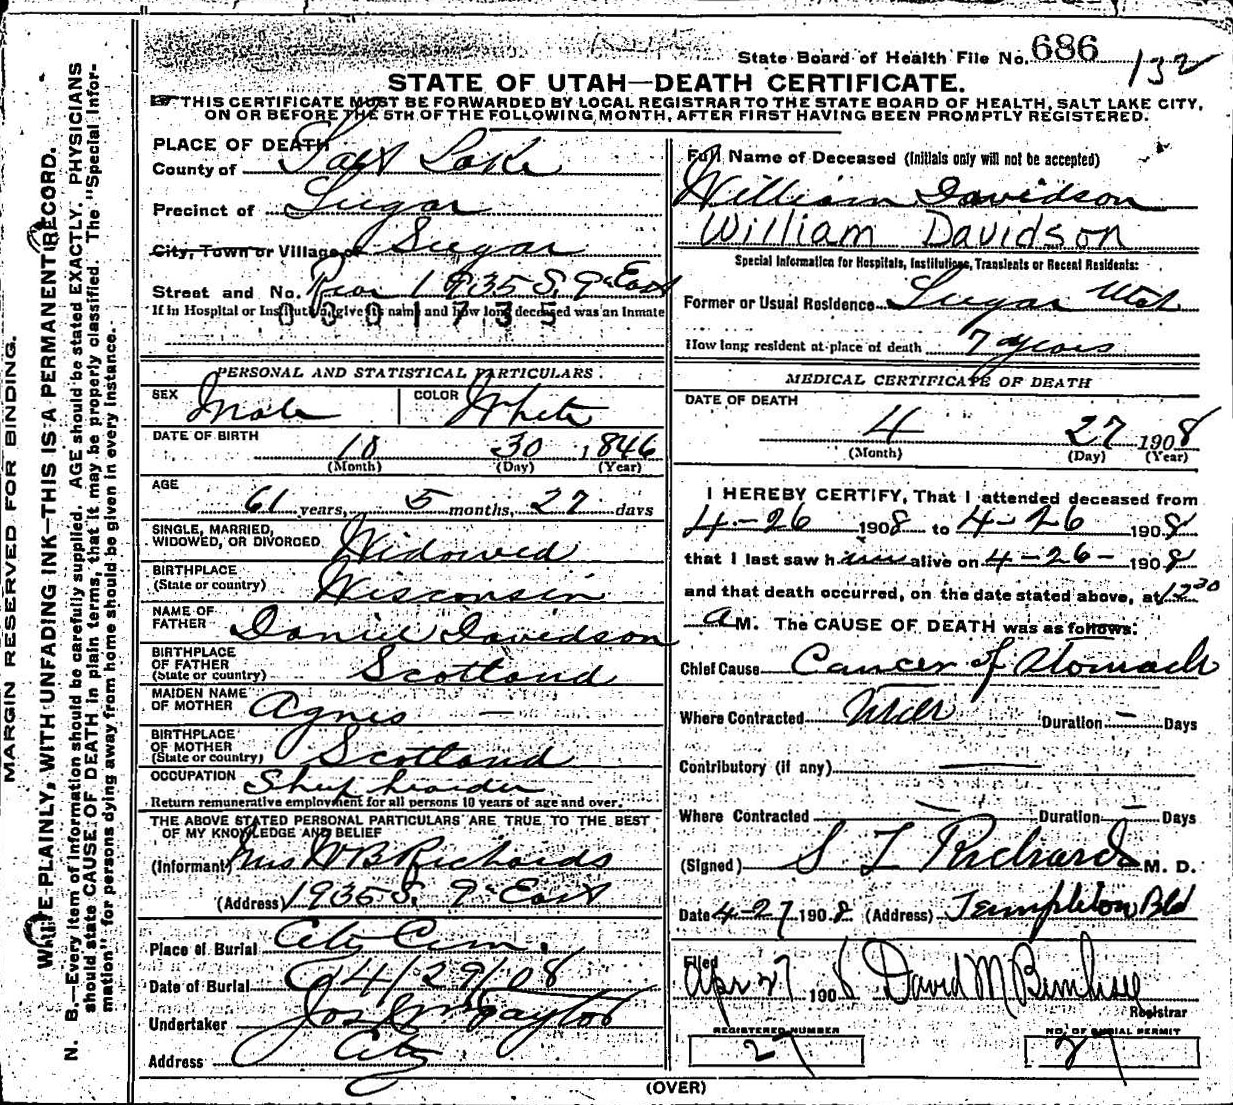 State Board of Health File No. 686 132
STATE OF UTAH—DEATH CERTIFICATE.
☞ THIS CERTIFICATE MUST BE FORWARDED BY LOCAL REGISTRAR TO THE STATE BOARD OF HEALTH, SALT LAKE CITY,
ON OR BEFORE THE 5TH OF THE FOLLOWING MONTH, AFTER FIRST HAVING BEEN PROMPTLY REGISTERED.
MARGIN RESERVED FOR BINDING.
WRITE PLAINLY, WITH UNFADING INK—THIS IS A PERMANENT RECORD.
N. B.—Every item of information should be carefully supplied. AGE should be stated EXACTLY, PHYSICIANS
should state CAUSE OF DEATH in plain terms, that it may be properly classified. The "Special Infor-
mation" for persons dying away from home should be given in every instance.
PLACE OF DEATH
County of Salt Lake
Precinct of Sugar
City, Town or Village of Sugar
Street and No. Rear 1935 S. 9th East
If in Hospital or Institution, give its name and how long deceased was an Inmate
0301735
PERSONAL AND STATISTICAL PARTICULARS.
SEX Male COLOR White
DATE OF BIRTH 10 30 1846
(Month) (Day) (Year)
AGE 61 years, 5 months, 27 days
SINGLE, MARRIED,
WIDOWED, OR DIVORCED Widowed
BIRTHPLACE
(State or country) Wisconsin
NAME OF
FATHER Daniel Davidson
BIRTHPLACE
OF FATHER
(State or country) Scotland
MAIDEN NAME
OF MOTHER Agnes —
BIRTHPLACE
OF MOTHER
(State or country) Scotland
OCCUPATION Sheep hearder
Return remunerative employment for all persons 10 years of age and over.
THE ABOVE STATED PERSONAL PARTICULARS ARE TRUE TO THE BEST
OF MY KNOWLEDGE AND BELIEF
(Informant) Mrs W B Richards
(Address) 1935 S. 9th East
Place of Burial City Cem.
Date of Burial 4/29/08
Undertaker Jos Wm Taylor
Address City
Full Name of Deceased (Initials only will not be accepted)
William Davidson
William Davidson
Special Information for Hospitals, Institutions, Transients or Recent Residents:
Former or Usual Residence Sugar Utah
How long resident at place of death 7 years
MEDICAL CERTIFICATE OF DEATH
DATE OF DEATH
4 27 1908
(Month) (Day) (Year)
I HEREBY CERTIFY, That I attended deceased from
4-26 1908 to 4-26 1908
that I last saw him alive on 4-26- 1908
and that death occurred, on the date stated above, at 12 30
A M. The CAUSE OF DEATH was as follows:
Chief Cause Cancer of Stomach
Where Contracted Utah Duration — Days
Contributory (if any) —
Where Contracted — Duration — Days
(Signed) S L Richards M. D.
Date 4-27 1908 (Address) Templeton Bld
Filed
Apr 27 1908 David M
Registrar
REGISTERED NUMBER NO. OF BURIAL PERMIT
27 27
(OVER)